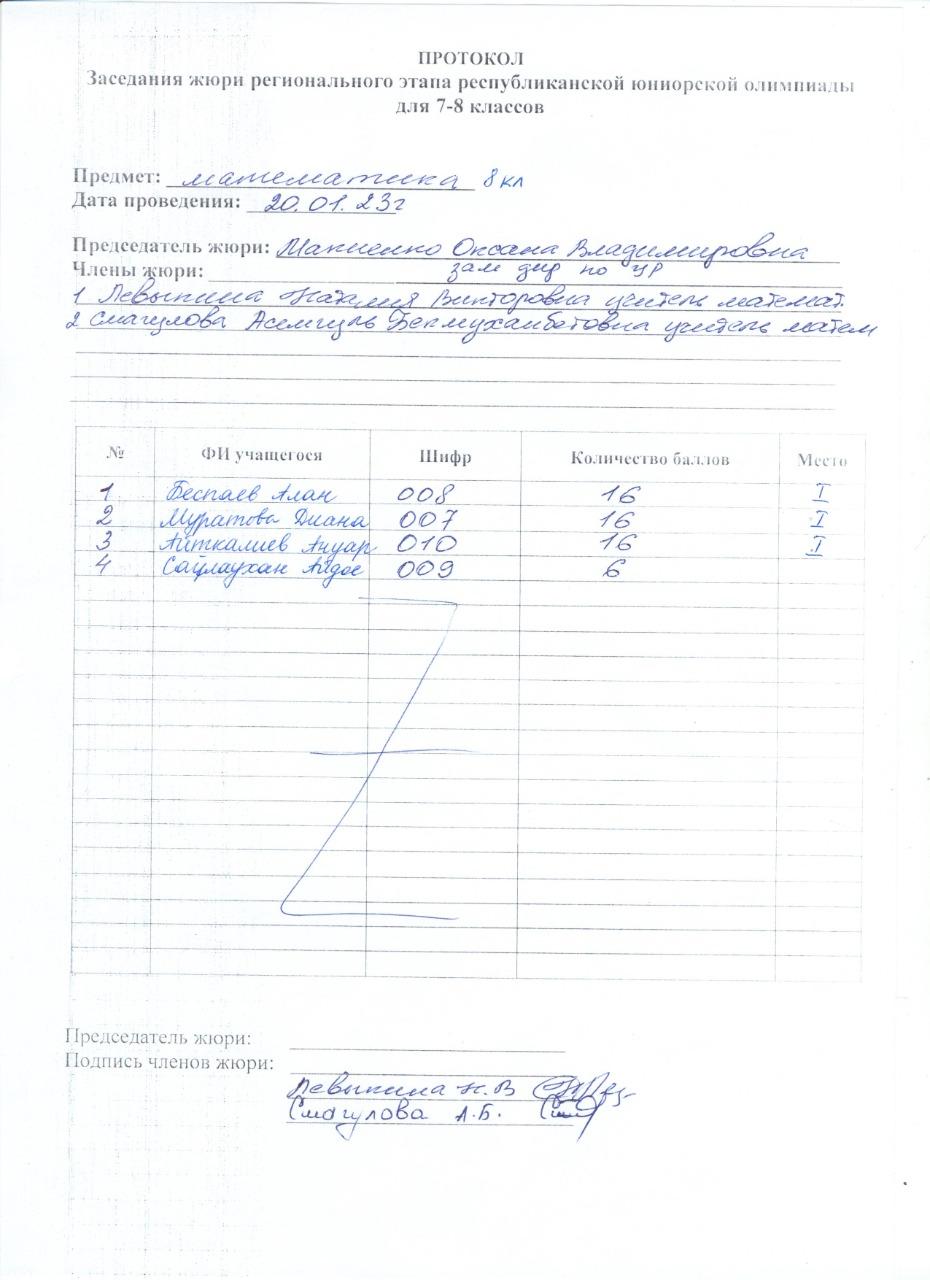 ПРОТОКОЛ
Заседания жюри регионального этапа республиканской юниорской олимпиады
для 7-8 классов
Предмет: математика 8 кл
Дата проведения: 20.01.23г
Председатель жюри: Оксана Владимировна
Члены жюри: зам дир по УР
1 Левыкина Наталия Викторовна учитель математ.
2 Смагулова Асемгуль Бекмухамбетовна учитель матем
№ ФИ учащегося Шифр Количество баллов Место
1 Беспаев Алан 008 16 I
2 Муратова Диана 007 16 I
3 Айткалиев Ануар 010 16 I
4 Сайлаухан Айдос 009 6
Председатель жюри:
Подпись членов жюри:
Левыкина Н.В
Смагулова А.Б.